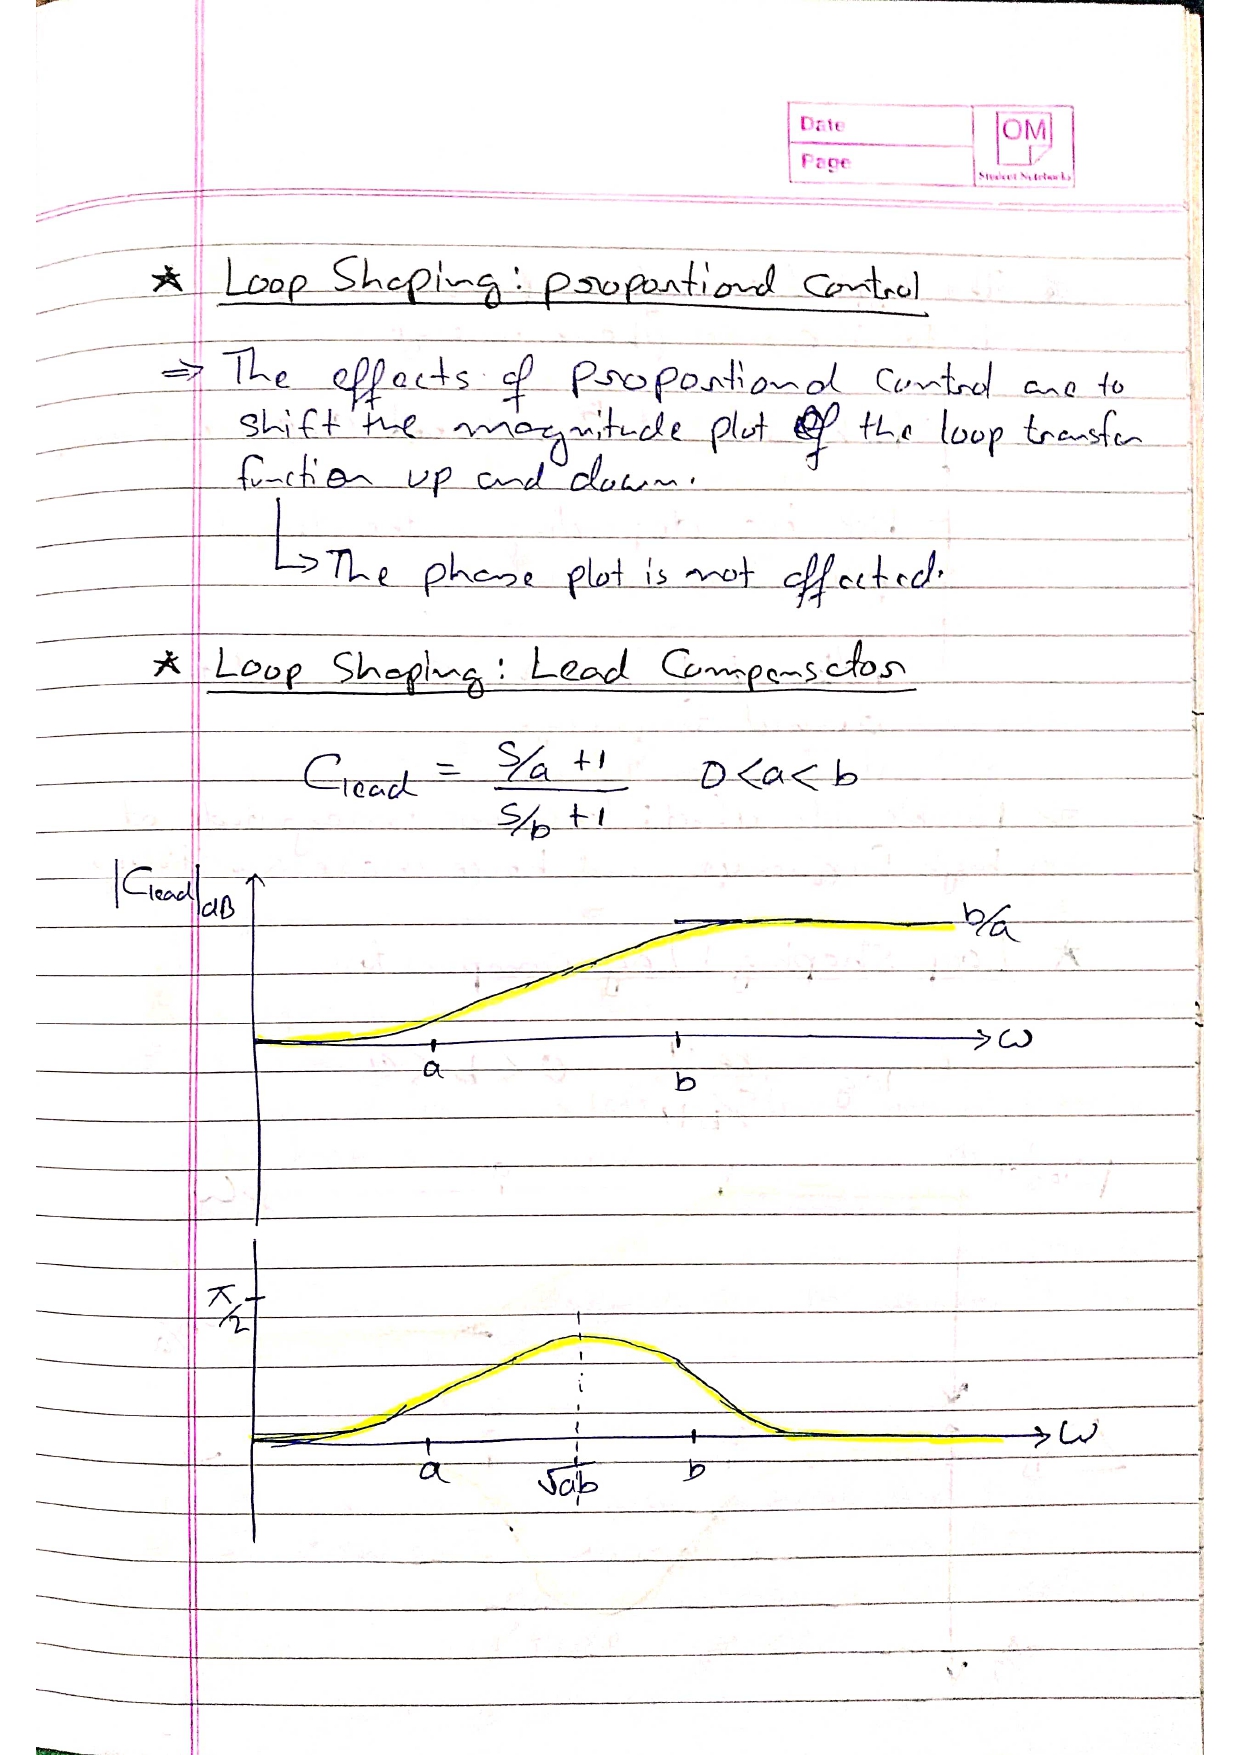 Date
Page
OM
Student Notebooks
★ Loop Shaping: proportional Control
⇒ The effects of proportional control are to
shift the magnitude plot of the loop transfer
function up and down.
↳ The phase plot is not affected.
★ Loop Shaping: Lead Compensator
C_lead = (s/a + 1)/(s/b + 1)   0 < a < b
|C_lead|_dB
b/a
a
b
ω
π/2
a
√ab
b
ω